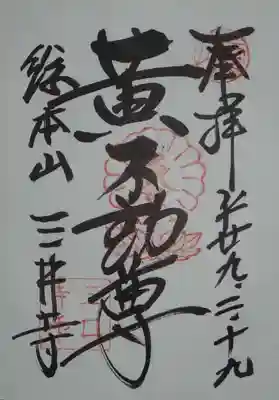 奉拝 平廿九・二・十九
黄不動尊
総本山 三井寺